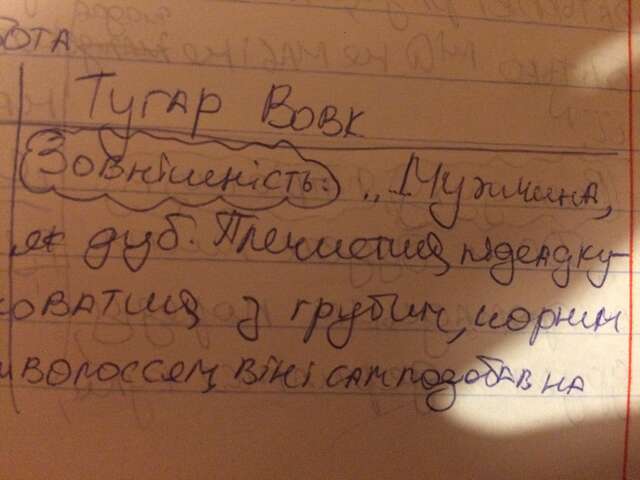 БОТА
Тугар Вовк
Зовнішність: „Мужчина,
як дуб. Плечистий, підсадку-
оватий з грубим, чорним
волоссем, він і сам подобав на